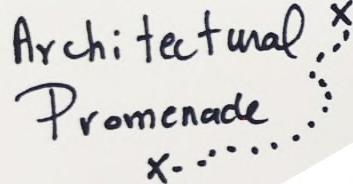 Architectural
Promenade